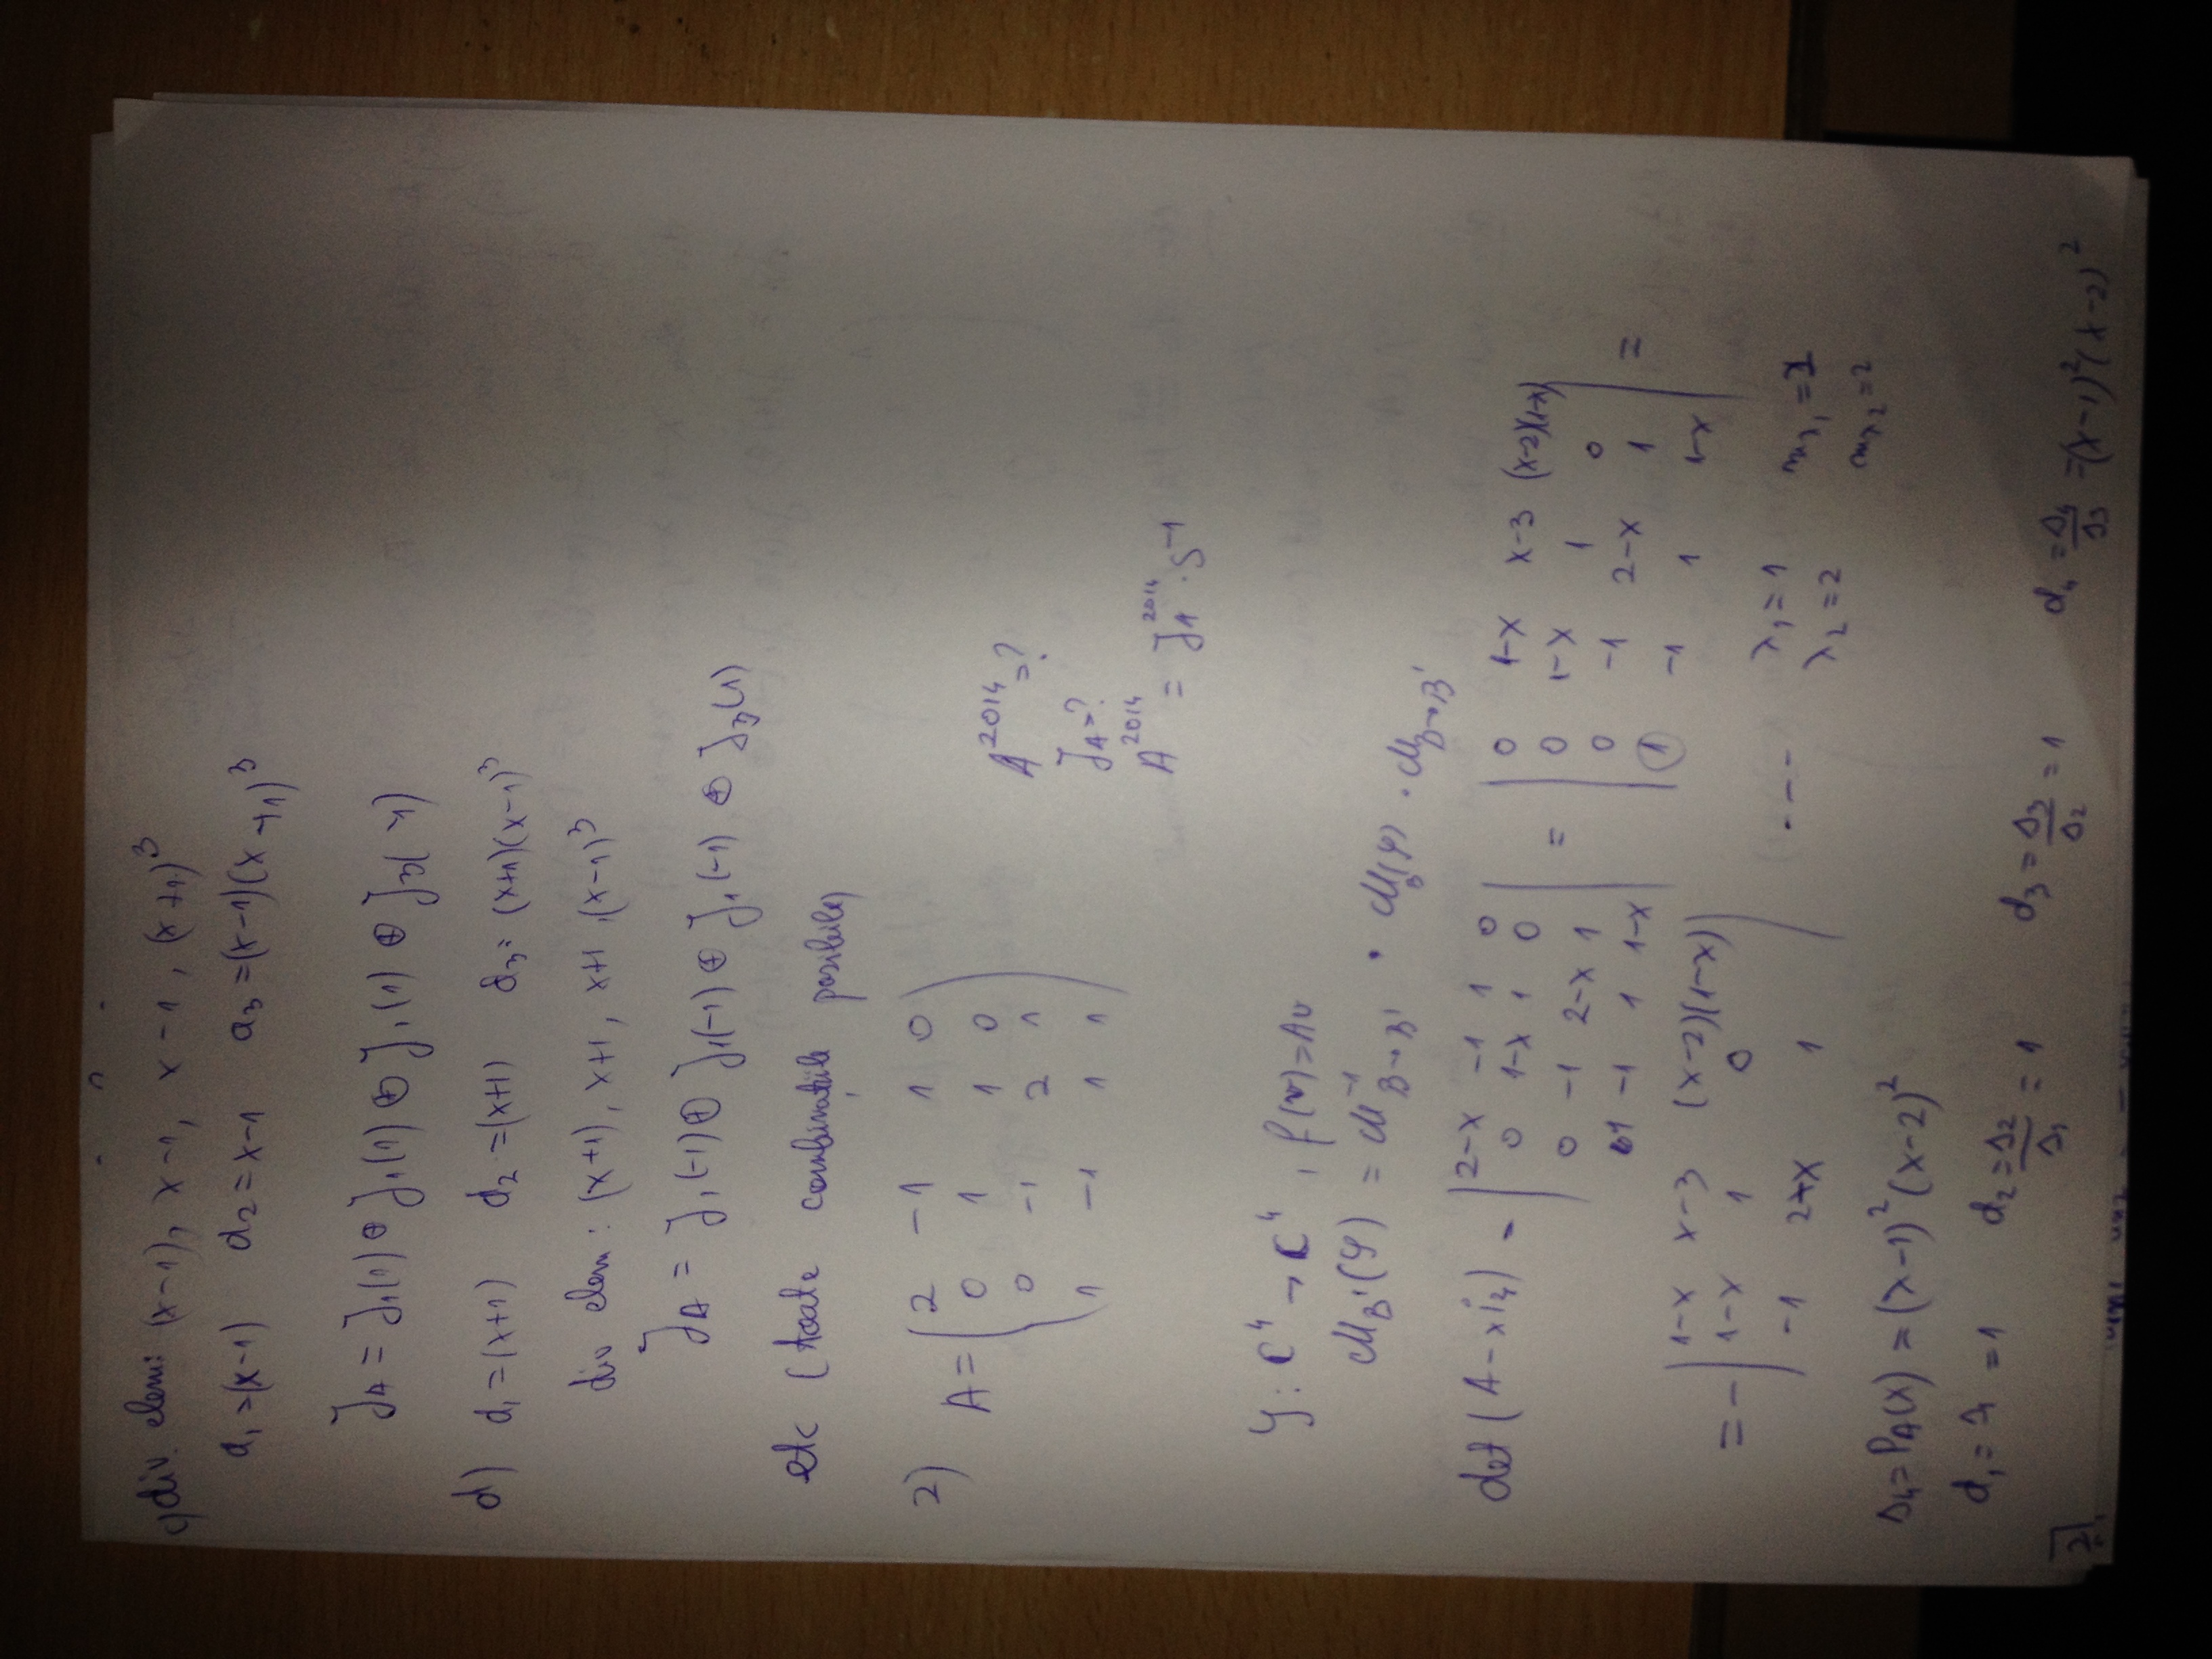 c) div. elem: (x-1), x-1, x-1, (x+1)³
d₁=(x-1) d₂=x-1 d₃=(x-1)(x+1)³
J_A = J₁(1) ⊕ J₁(1) ⊕ J₁(1) ⊕ J₃(-1)
d) d₁=(x+1) d₂=(x+1) d₃=(x+1)(x-1)³
div elem: (x+1), x+1, x+1, (x-1)³
J_A = J₁(-1) ⊕ J₁(-1) ⊕ J₁(-1) ⊕ J₃(1)
etc (toate combinațiile posibile)
2) A =
2 -1 1 0
0 1 1 0
0 -1 2 1
1 -1 1 1
A²⁰¹⁴ = ?
J_A = ?
A²⁰¹⁴ = J_A²⁰¹⁴ · S⁻¹
φ: C⁴ → C⁴, f(v)=Av
M_B'(φ) = M⁻¹_B→B' · M_B(φ) · M_B→B'
det(A-xI₄) =
2-x -1 1 0
0 1-x 1 0
0 -1 2-x 1
1 -1 1 1-x
=
0 1-x x-3 (x-2)(1-x)
0 1-x 1 0
0 -1 2-x 1
1 -1 1 1-x
=
= -
1-x x-3 (x-2)(1-x)
1-x 1 0
-1 2-x 1
---
λ₁=1 m_λ₁=2
λ₂=2 m_λ₂=2
Δ₄=P_A(x) = (x-1)²(x-2)²
d₁ = Δ₁ = 1 d₂ = Δ₂/Δ₁ = 1 d₃ = Δ₃/Δ₂ = 1 d₄ = Δ₄/Δ₃ = (x-1)²(x-2)²
2